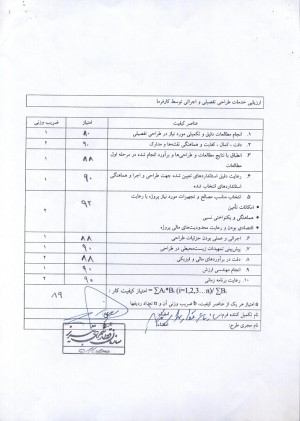 ارزیابی خدمات طراحی تفصیلی و اجرائی توسط کارفرما
عناصر کیفیت امتیاز ضریب وزنی
۱. انجام مطالعات دقیق و تکمیلی مورد نیاز در طراحی تفصیلی ۸۰ ۱
۲. دقت ، کمال ، کفایت و هماهنگی نقشه‌ها و مدارک ۹۰ ۲
۳. انطباق با نتایج مطالعات و طراحی‌ها و برآورد انجام شده در مرحله اول مطالعات ۸۸ ۱
۴. رعایت دقیق استانداردهای تعیین شده جهت طراحی و اجرا و هماهنگی استانداردهای انتخاب شده ۹۰ ۱
۵. انتخاب مناسب مصالح و تجهیزات مورد نیاز پروژه با رعایت ۹۲ ۲
• امکانات تأمین
• هماهنگی و یکنواختی نسبی
• اقتصادی بودن و رعایت محدودیت‌های مالی پروژه
۶. اجرائی و عملی بودن جزئیات طراحی ۸۸
۷. پیش‌بینی تمهیدات زیست‌محیطی در طراحی ۹۰ ۱
۸. دقت در برآوردهای مالی و فیزیکی ۸۸ ۲
۹. انجام مهندسی ارزش ۹۰ ۱
۱۰. رعایت برنامه زمانی ۹۰ ۲
امتیاز کیفیت کار = ∑Aᵢ*Bᵢ (i=1,2,3...n)/ ∑Bᵢ ۸۹
a امتیاز هر یک از عناصر کیفیت، b ضریب وزنی آن و n تعداد ردیفها
نام تکمیل کننده فرم:
نام مجری طرح: امضاء: